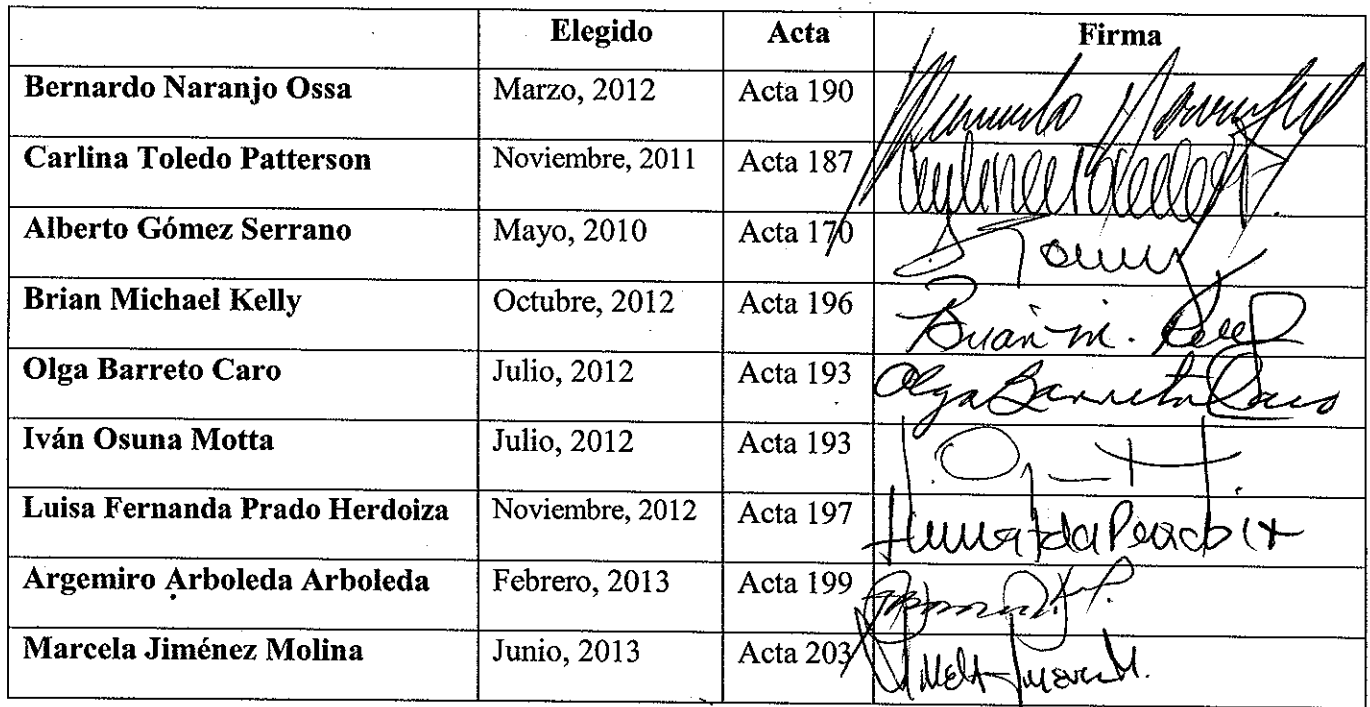 Elegido Acta Firma
Bernardo Naranjo Ossa Marzo, 2012 Acta 190
Carlina Toledo Patterson Noviembre, 2011 Acta 187
Alberto Gómez Serrano Mayo, 2010 Acta 170
Brian Michael Kelly Octubre, 2012 Acta 196 Brian M. Kelly
Olga Barreto Caro Julio, 2012 Acta 193 Olga Barreto Caro
Iván Osuna Motta Julio, 2012 Acta 193
Luisa Fernanda Prado Herdoiza Noviembre, 2012 Acta 197
Argemiro Arboleda Arboleda Febrero, 2013 Acta 199
Marcela Jiménez Molina Junio, 2013 Acta 203